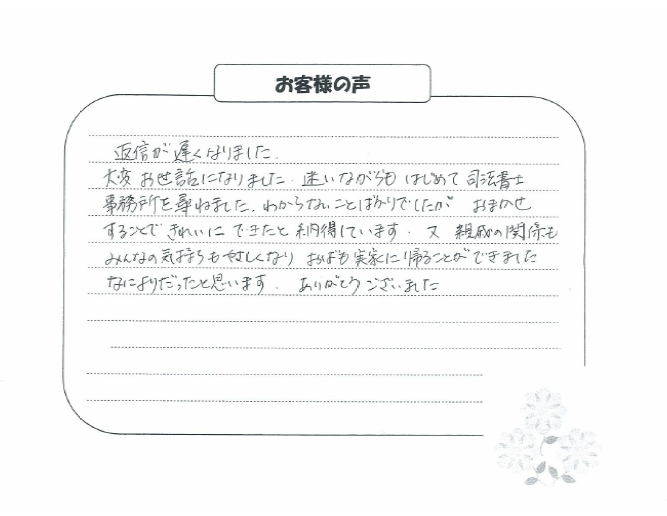 お客様の声
返信が遅くなりました.
大変お世話になりました. 迷いながらも はじめて 司法書士
事務所を尋ねました. わからないことばかりでしたが おまかせ
することで きれいに できたと 納得しています. 又 親戚の関係も
みんなの気持ちもやさしくなり も実家に帰ることができました
なによりだったと思います. ありがとうございました